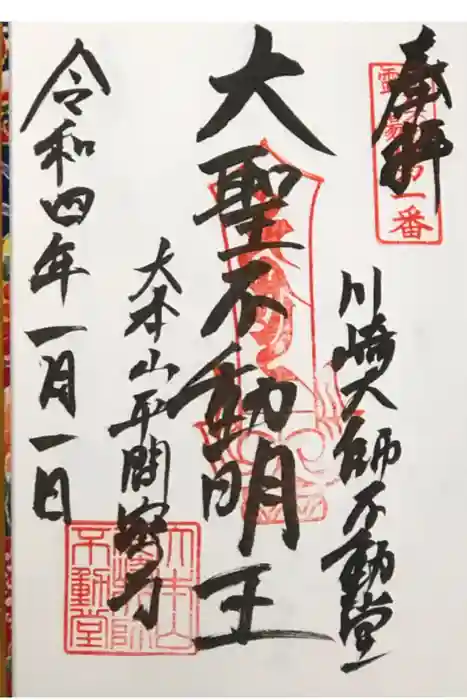 奉拝
川崎大師不動堂
大聖不動明王
大本山平間寺
令和四年一月一日
第一番
大本山
川崎大師
不動堂